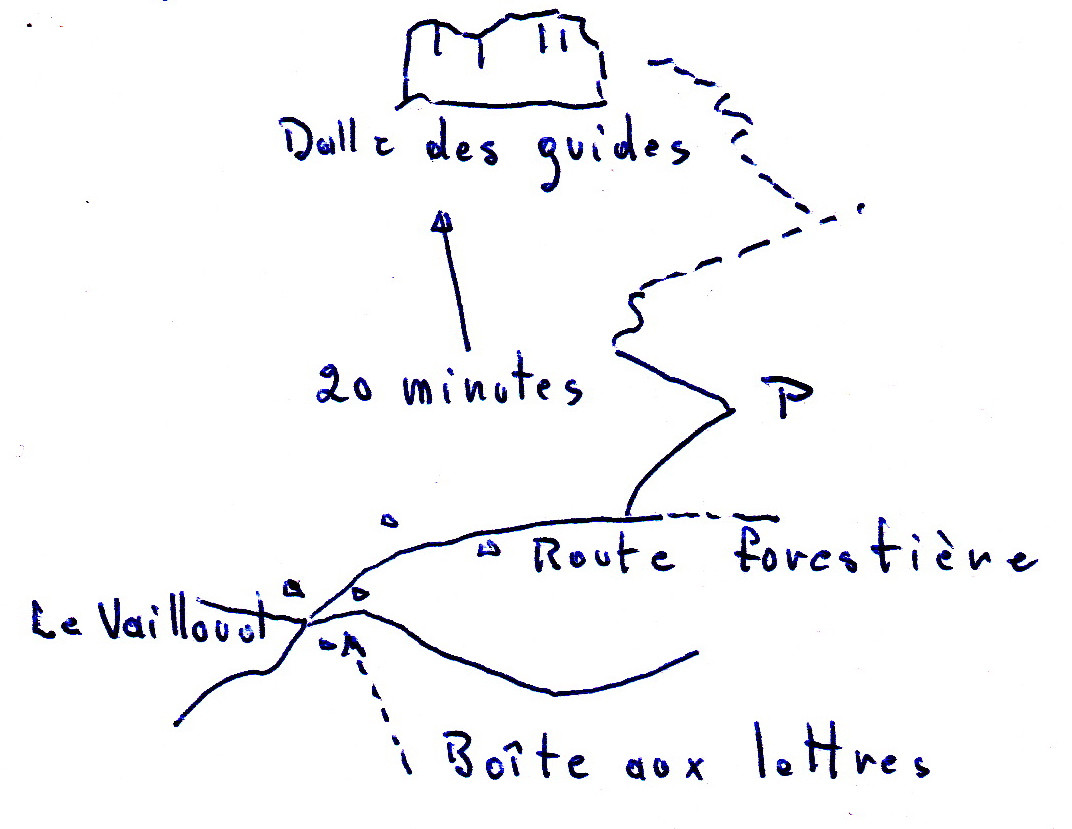 Dalle des guides
20 minutes
P
Route forestière
Le Vaillouot
Boîte aux lettres